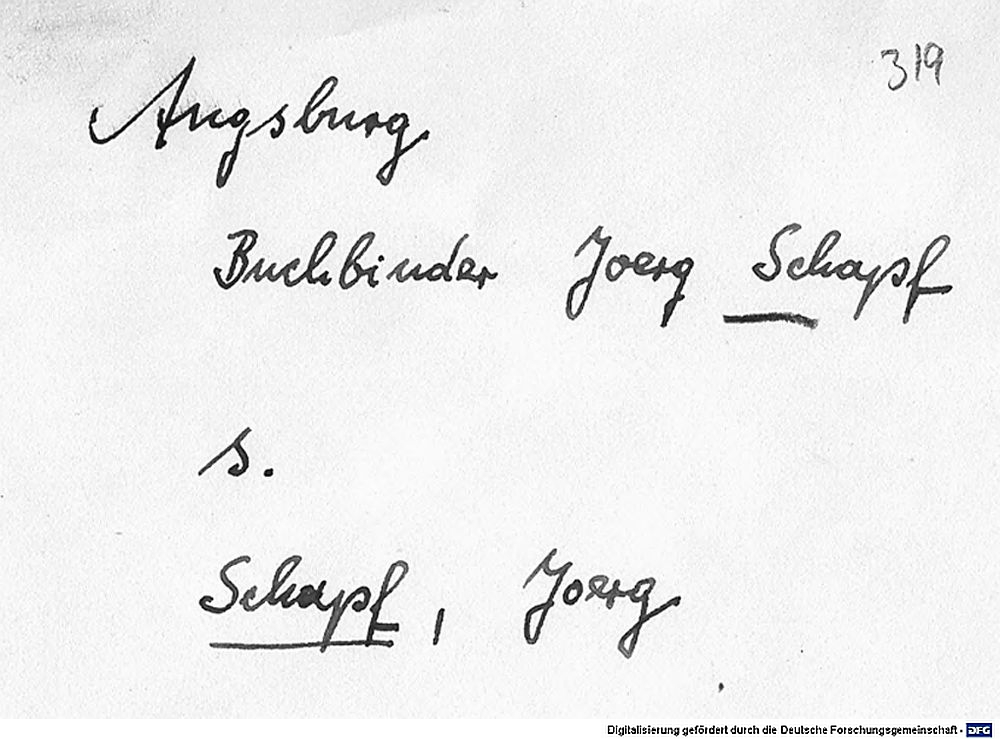 319
Augsburg
Buchbinder Joerg Schapf
s.
Schapf, Joerg
Digitalisierung gefördert durch die Deutsche Forschungsgemeinschaft - DFG